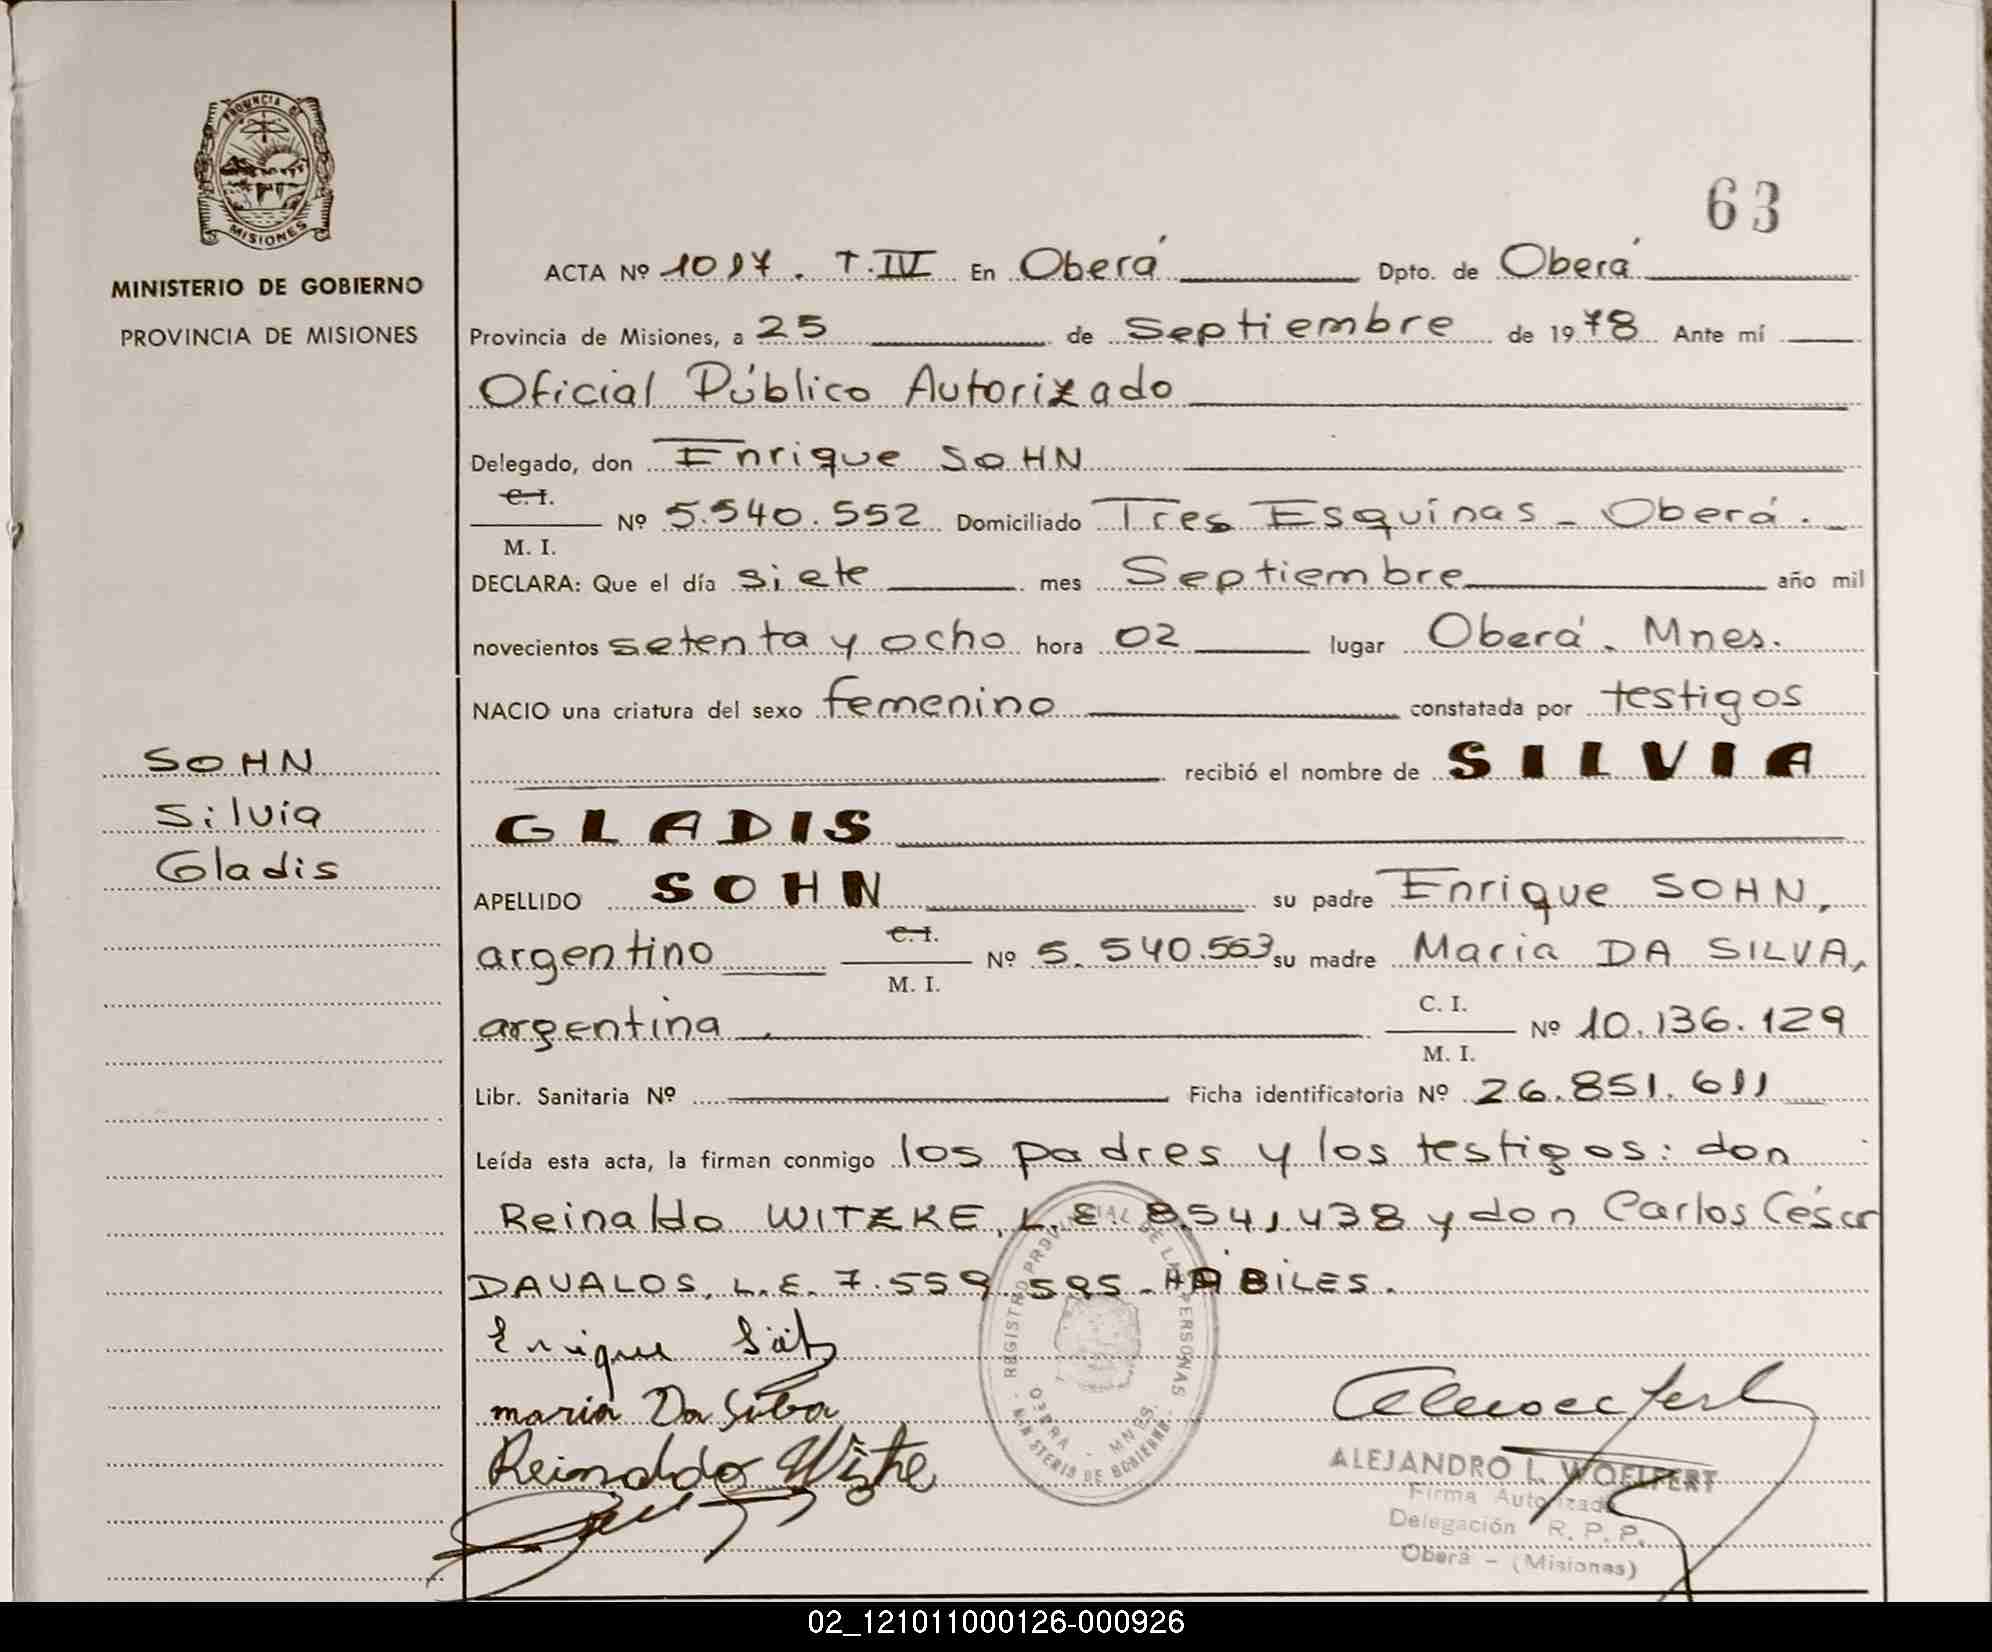 PROVINCIA DE
MISIONES
MINISTERIO DE GOBIERNO
PROVINCIA DE MISIONES
63
ACTA Nº 1017. T.IV En Oberá Dpto. de Oberá
Provincia de Misiones, a 25 de Septiembre de 1978 Ante mí
Oficial Público Autorizado
Delegado, don Enrique SOHN
C. I.
Nº 5.540.552 Domiciliado Tres Esquinas - Oberá.
M. I.
DECLARA: Que el día siete mes Septiembre año mil
novecientos setenta y ocho hora 02 lugar Oberá. Mnes.
NACIO una criatura del sexo femenino constatada por testigos
recibió el nombre de SILVIA
GLADIS
SOHN
Silvia
Gladis
APELLIDO SOHN su padre Enrique SOHN,
C. I.
argentino Nº 5.540.553 su madre Maria DA SILVA,
M. I.
C. I.
argentina, Nº 10.136.129
M. I.
Libr. Sanitaria Nº Ficha identificatoria Nº 26.851.611
Leída esta acta, la firman conmigo los padres y los testigos: don
Reinaldo WITZKE, L.E. 8.541.438 y don Carlos César
DAVALOS, L.E. 7.559.595.- HÁBILES.
Enrique
maria Da Silva
Reinaldo
REGISTRO PROVINCIAL DE LAS PERSONAS
OBERA - MNES.
MINISTERIO DE GOBIERNO
ALEJANDRO L. WOELFERT
Firma Autorizada
Delegación R. P. P.
Oberá - (Misiones)
02_121011000126-000926